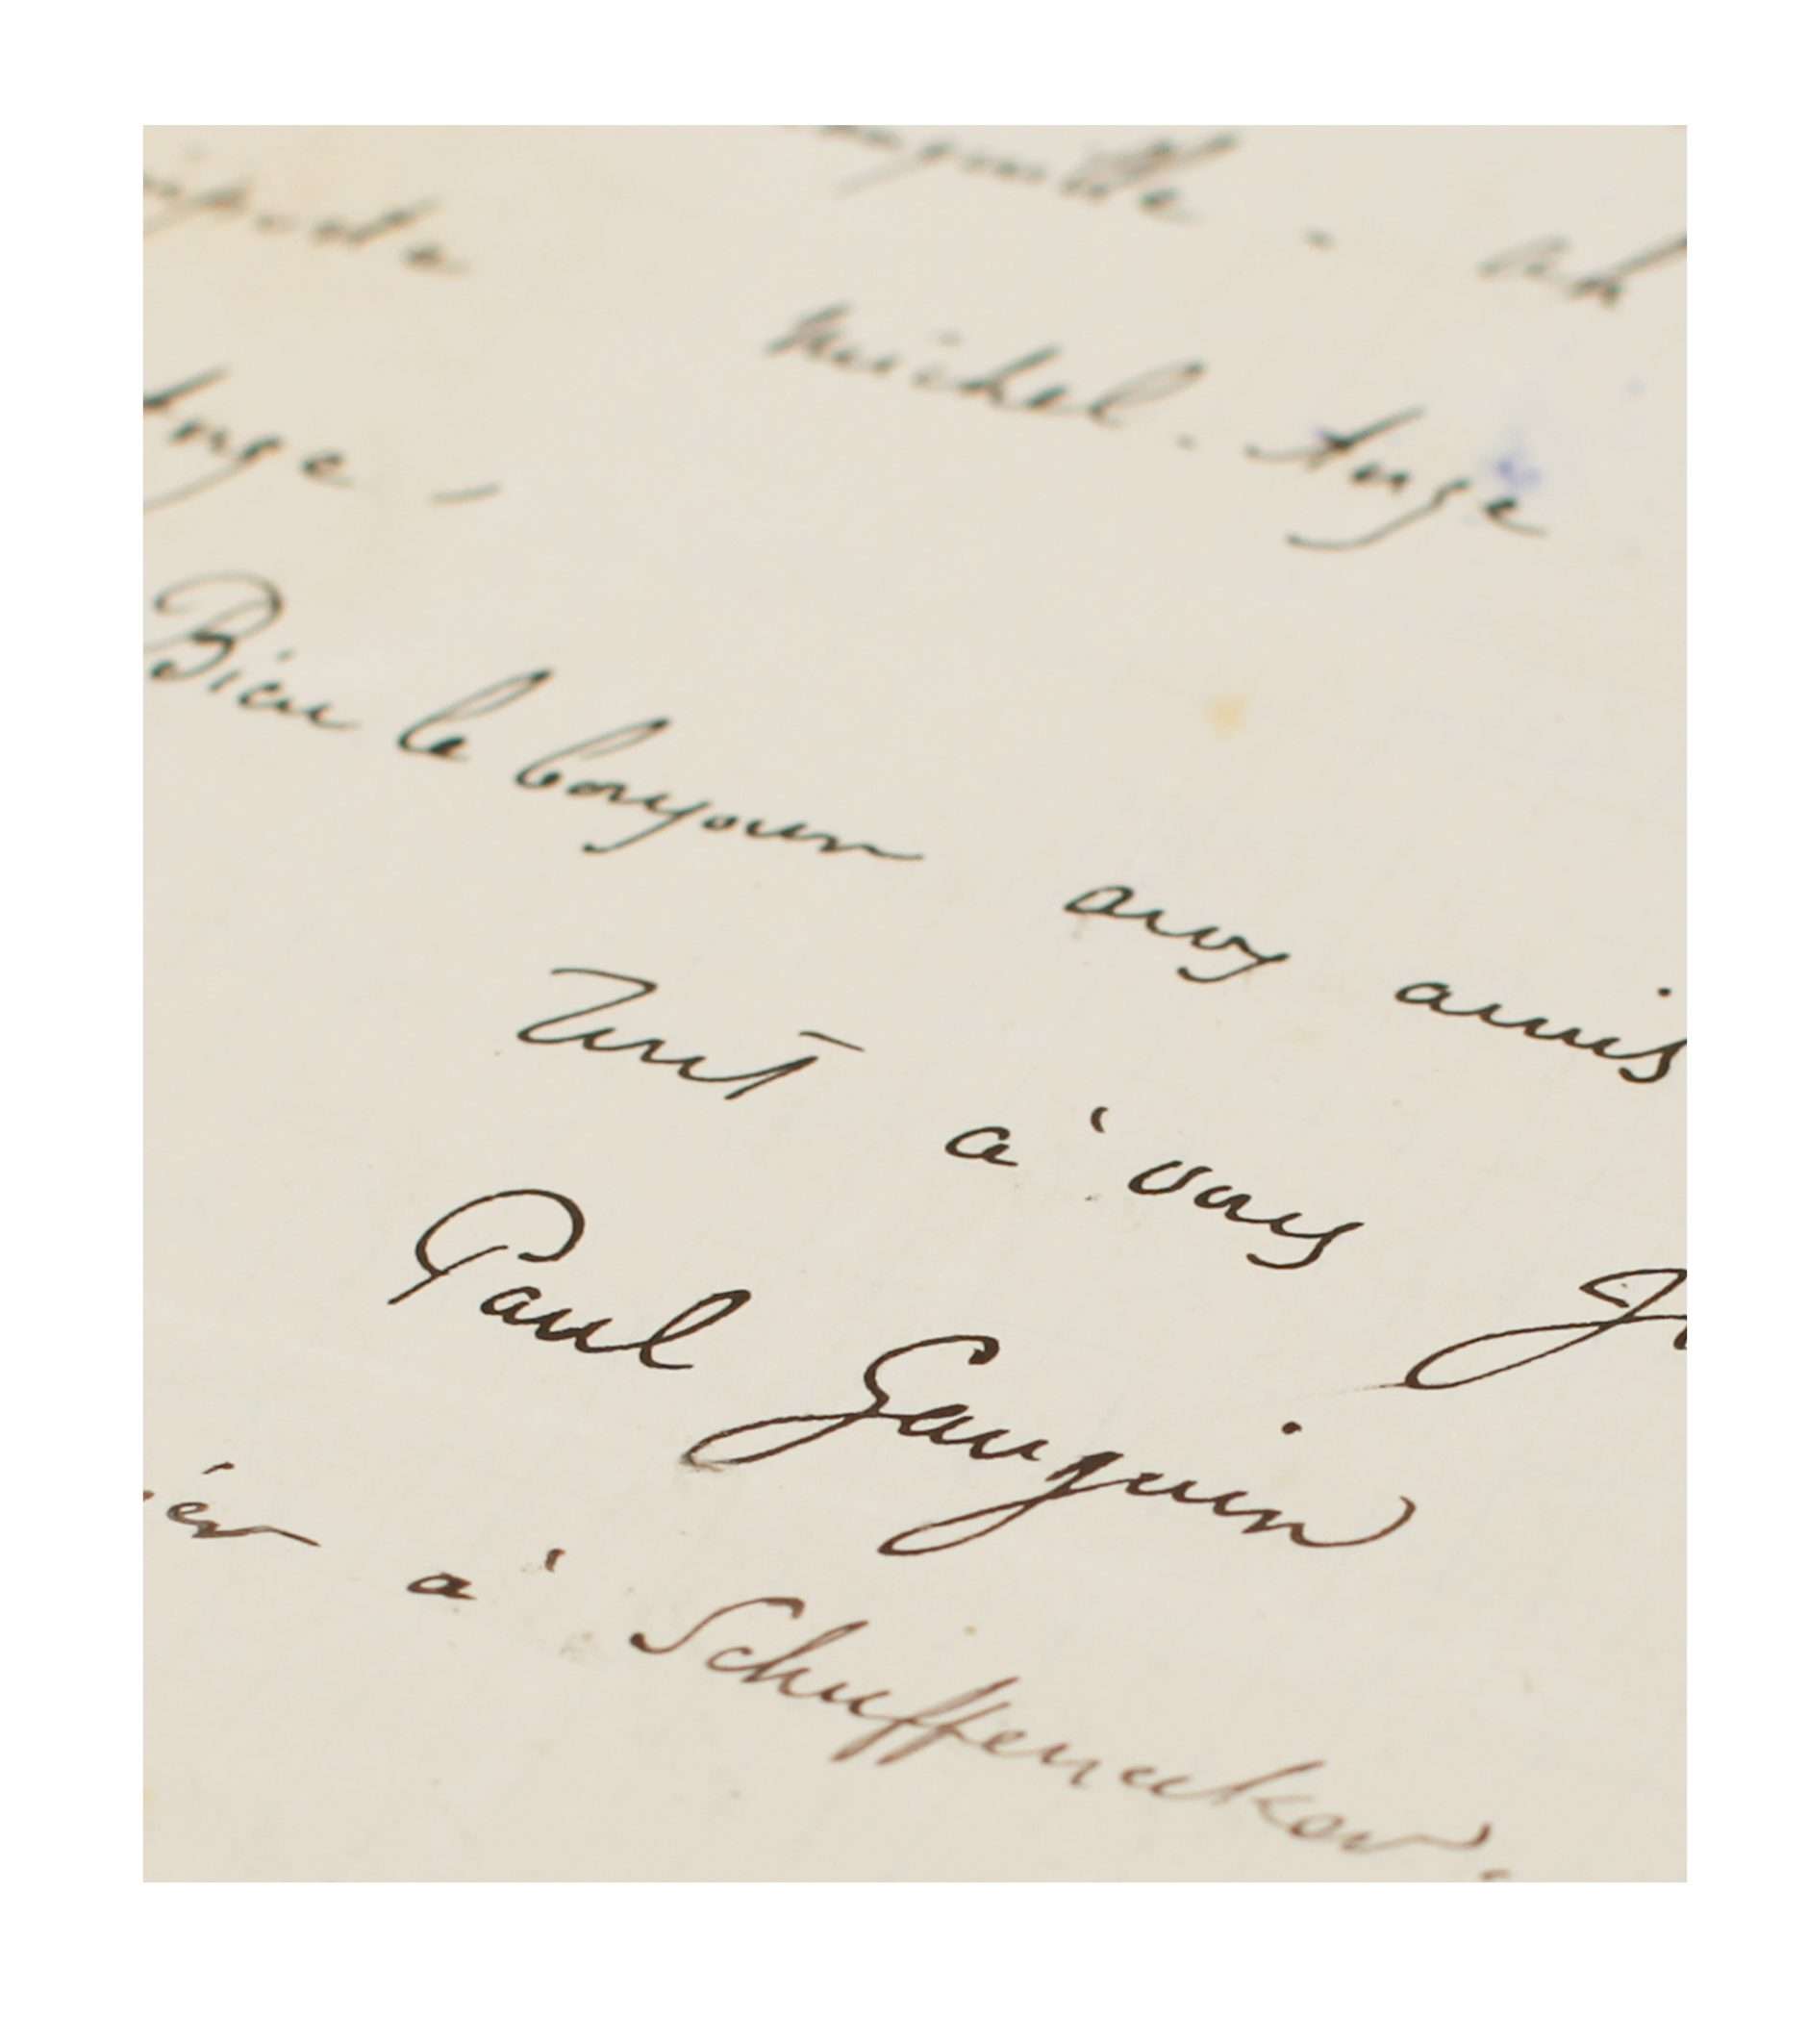 Michel-Ange
Bien le bonjour aux amis
Tout à vous
Paul Gauguin
à Schuffenecker.